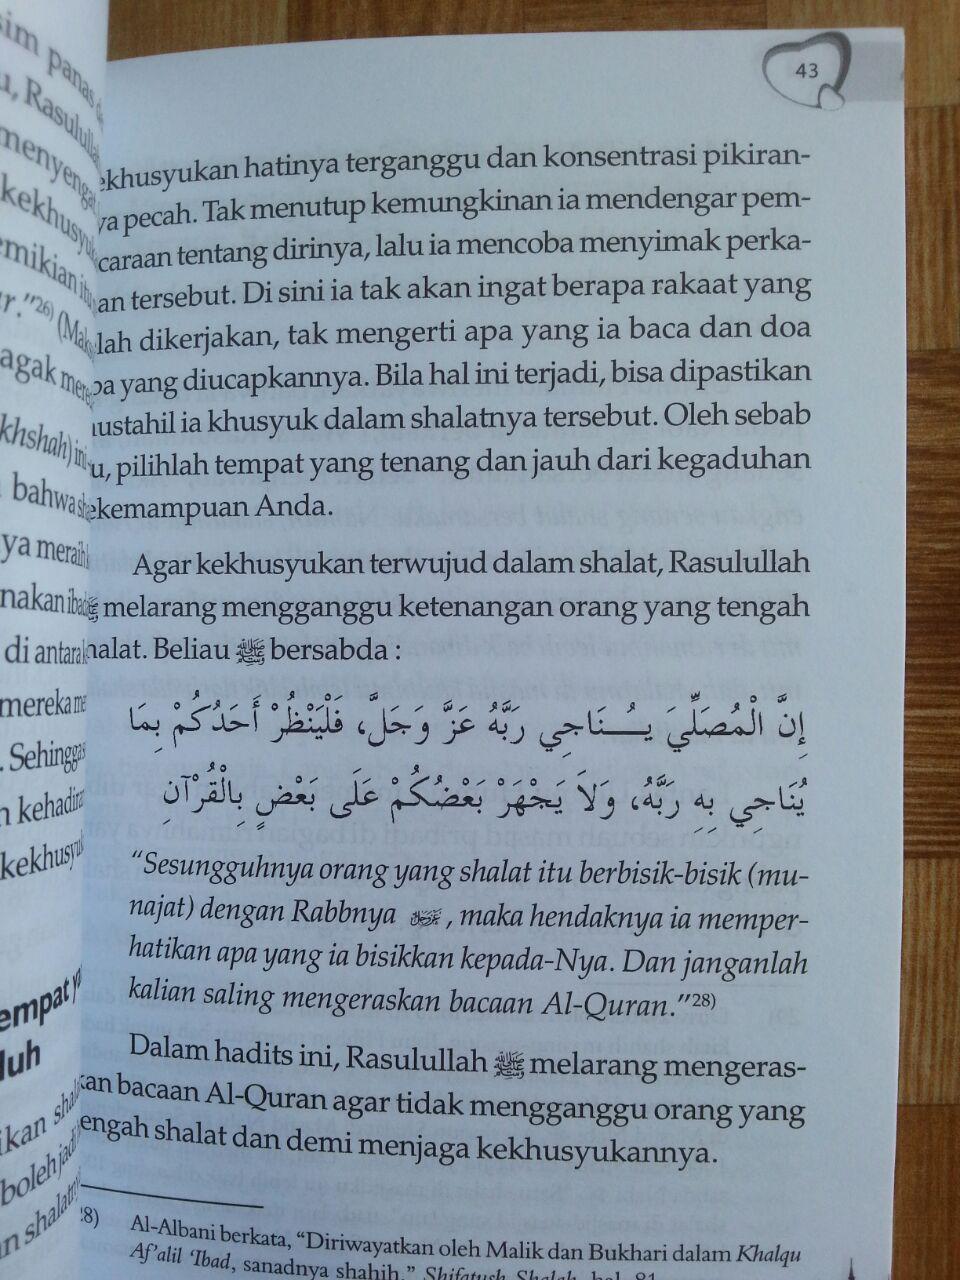 sim panas
Rasulull
menyenga
kekhusyuk
emikian itu
r."26) (Mak
agak
khshah) ini
bahwa
ya meraih
nakan ibad
di antara
mereka
. Sehingga
n kehadira
kekhusyu
empat
luh
ikan
boleh jadi
n shalat
43
ekhusyukan hatinya terganggu dan konsentrasi pikiran-
ya pecah. Tak menutup kemungkinan ia mendengar pem-
caraan tentang dirinya, lalu ia mencoba menyimak perka-
an tersebut. Di sini ia tak akan ingat berapa rakaat yang
lah dikerjakan, tak mengerti apa yang ia baca dan doa
pa yang diucapkannya. Bila hal ini terjadi, bisa dipastikan
ustahil ia khusyuk dalam shalatnya tersebut. Oleh sebab
u, pilihlah tempat yang tenang dan jauh dari kegaduhan
ekemampuan Anda.
Agar kekhusyukan terwujud dalam shalat, Rasulullah
ﷺ melarang mengganggu ketenangan orang yang tengah
halat. Beliau ﷺ bersabda :
إِنَّ الْمُصَلِّيَ يُـنَاجِي رَبَّهُ عَزَّ وَجَلَّ، فَلْيَنْظُرْ أَحَدُكُمْ بِمَا
يُنَاجِي بِهِ رَبَّهُ، وَلاَ يَجْهَرْ بَعْضُكُمْ عَلَى بَعْضٍ بِالْقُرْآنِ
"Sesungguhnya orang yang shalat itu berbisik-bisik (mu-
najat) dengan Rabbnya , maka hendaknya ia memper-
hatikan apa yang ia bisikkan kepada-Nya. Dan janganlah
kalian saling mengeraskan bacaan Al-Quran."28)
Dalam hadits ini, Rasulullah ﷺ melarang mengeras-
kan bacaan Al-Quran agar tidak mengganggu orang yang
engah shalat dan demi menjaga kekhusyukannya.
28) Al-Albani berkata, "Diriwayatkan oleh Malik dan Bukhari dalam Khalqu
Af'alil 'Ibad, sanadnya shahih." Shifatush Shalah, hal. 81